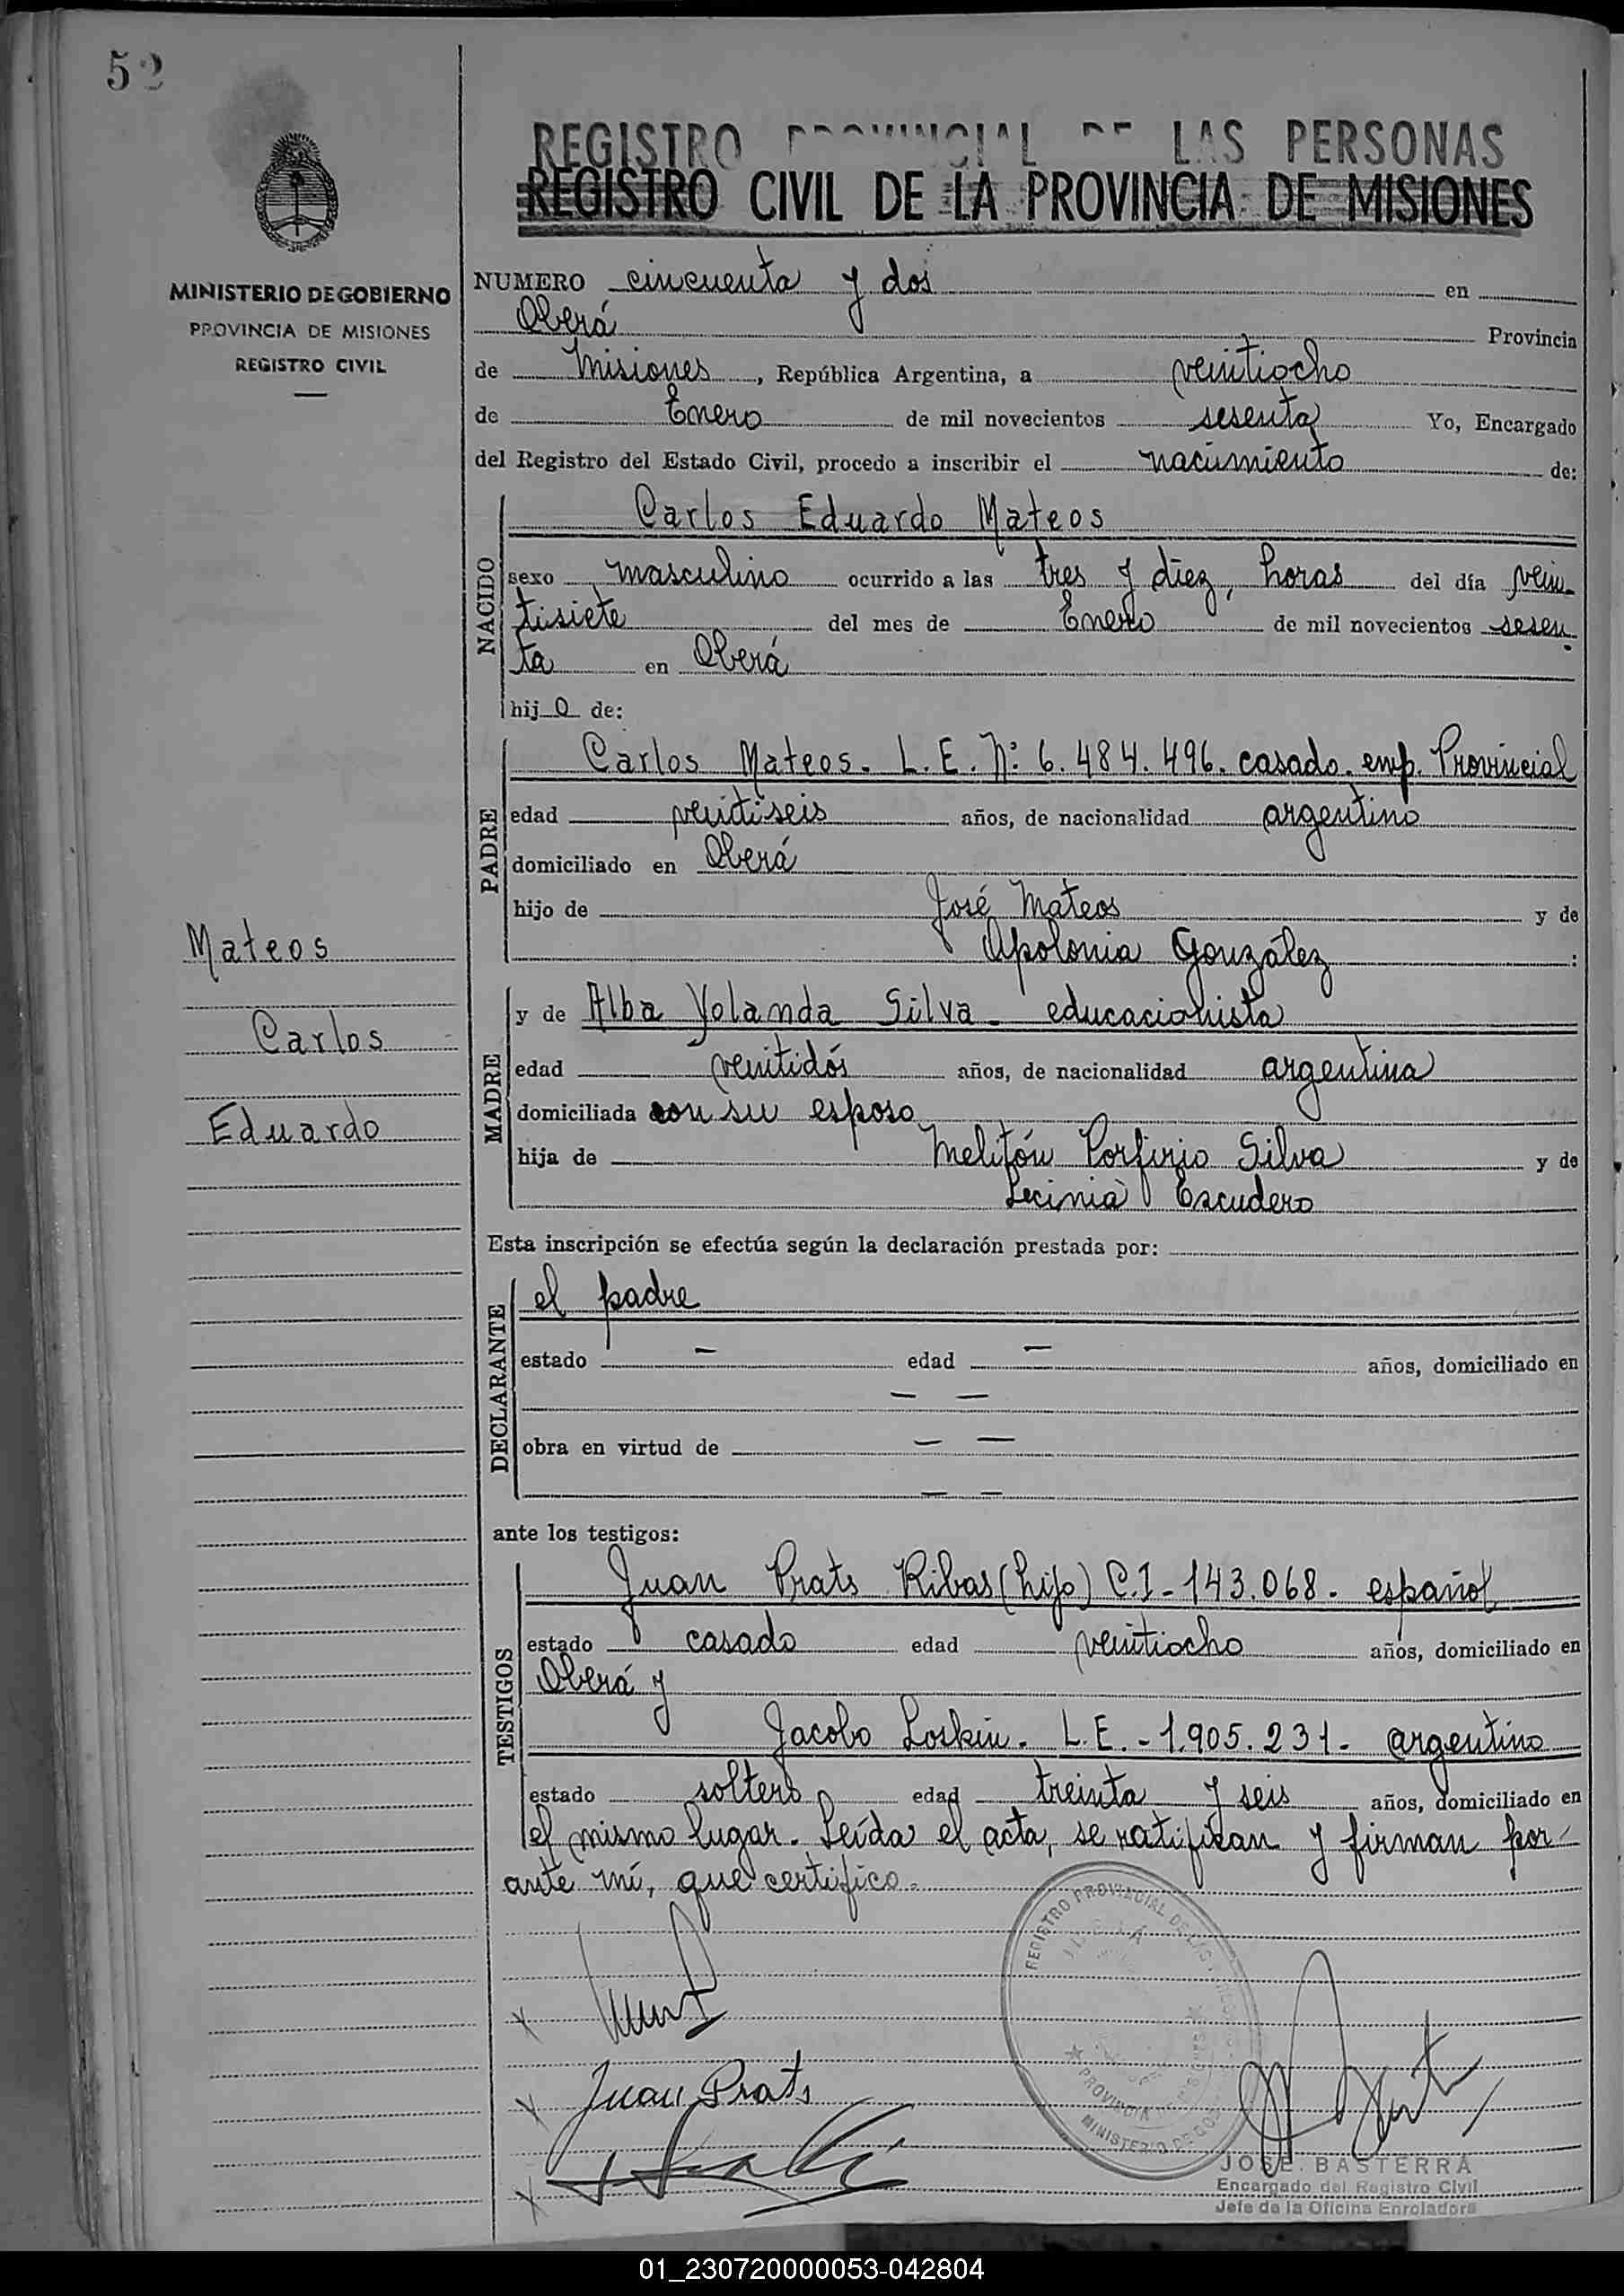 52
REGISTRO PROVINCIAL DE LAS PERSONAS
REGISTRO CIVIL DE LA PROVINCIA DE MISIONES
MINISTERIO DE GOBIERNO
PROVINCIA DE MISIONES
REGISTRO CIVIL
NUMERO cincuenta y dos en
Oberá Provincia
de Misiones, República Argentina, a veintiocho
de Enero de mil novecientos sesenta Yo, Encargado
del Registro del Estado Civil, procedo a inscribir el nacimiento de:
NACIDO
Carlos Eduardo Mateos
sexo masculino ocurrido a las tres y diez, horas del día vein-
tisiete del mes de Enero de mil novecientos sesen-
ta en Oberá
hijo de:
PADRE
Carlos Mateos. L.E. Nº 6.484.496. casado. emp. Provincial
edad veintiseis años, de nacionalidad argentino
domiciliado en Oberá
hijo de José Mateos y de
Apolonia González :
Mateos
Carlos
Eduardo
MADRE
y de Alba Yolanda Silva - educacionista
edad veintidós años, de nacionalidad argentina
domiciliada con su esposo
hija de Melitón Porfirio Silva y de
Lecinia Escudero
Esta inscripción se efectúa según la declaración prestada por:
DECLARANTE
el padre
estado - edad - años, domiciliado en
- -
obra en virtud de - -
- -
ante los testigos:
TESTIGOS
Juan Prats Ribas (hijo) C.I - 143.068 - español
estado casado edad veintiocho años, domiciliado en
Oberá y
Jacobo Loskin. L.E. - 1.905.231 - argentino
estado soltero edad treinta y seis años, domiciliado en
el mismo lugar. Leída el acta, se ratifican y firman por
ante mí, que certifico.
REGISTRO PROVINCIAL DE LAS
PROVINCIA DE MISIONES
MINISTERIO DE GOB
Juan Prats
JOSE BASTERRA
Encargado del Registro Civil
Jefe de la Oficina Enroladora
01_230720000053-042804